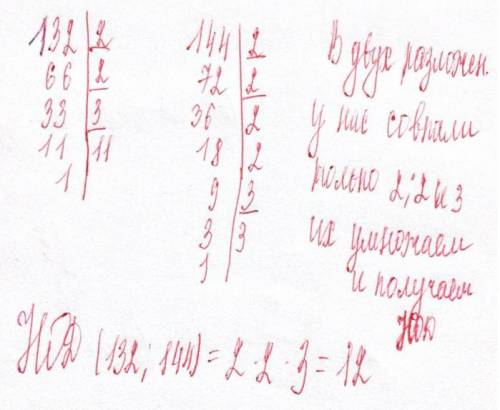 132 | 2
66 | 2
33 | 3
11 | 11
1
144 | 2
72 | 2
36 | 2
18 | 2
9 | 3
3 | 3
1
В двух разложен.
у нас совпали
только 2; 2 и 3
их умножаем
и получаем
НОД
НОД (132; 144) = 2 · 2 · 3 = 12